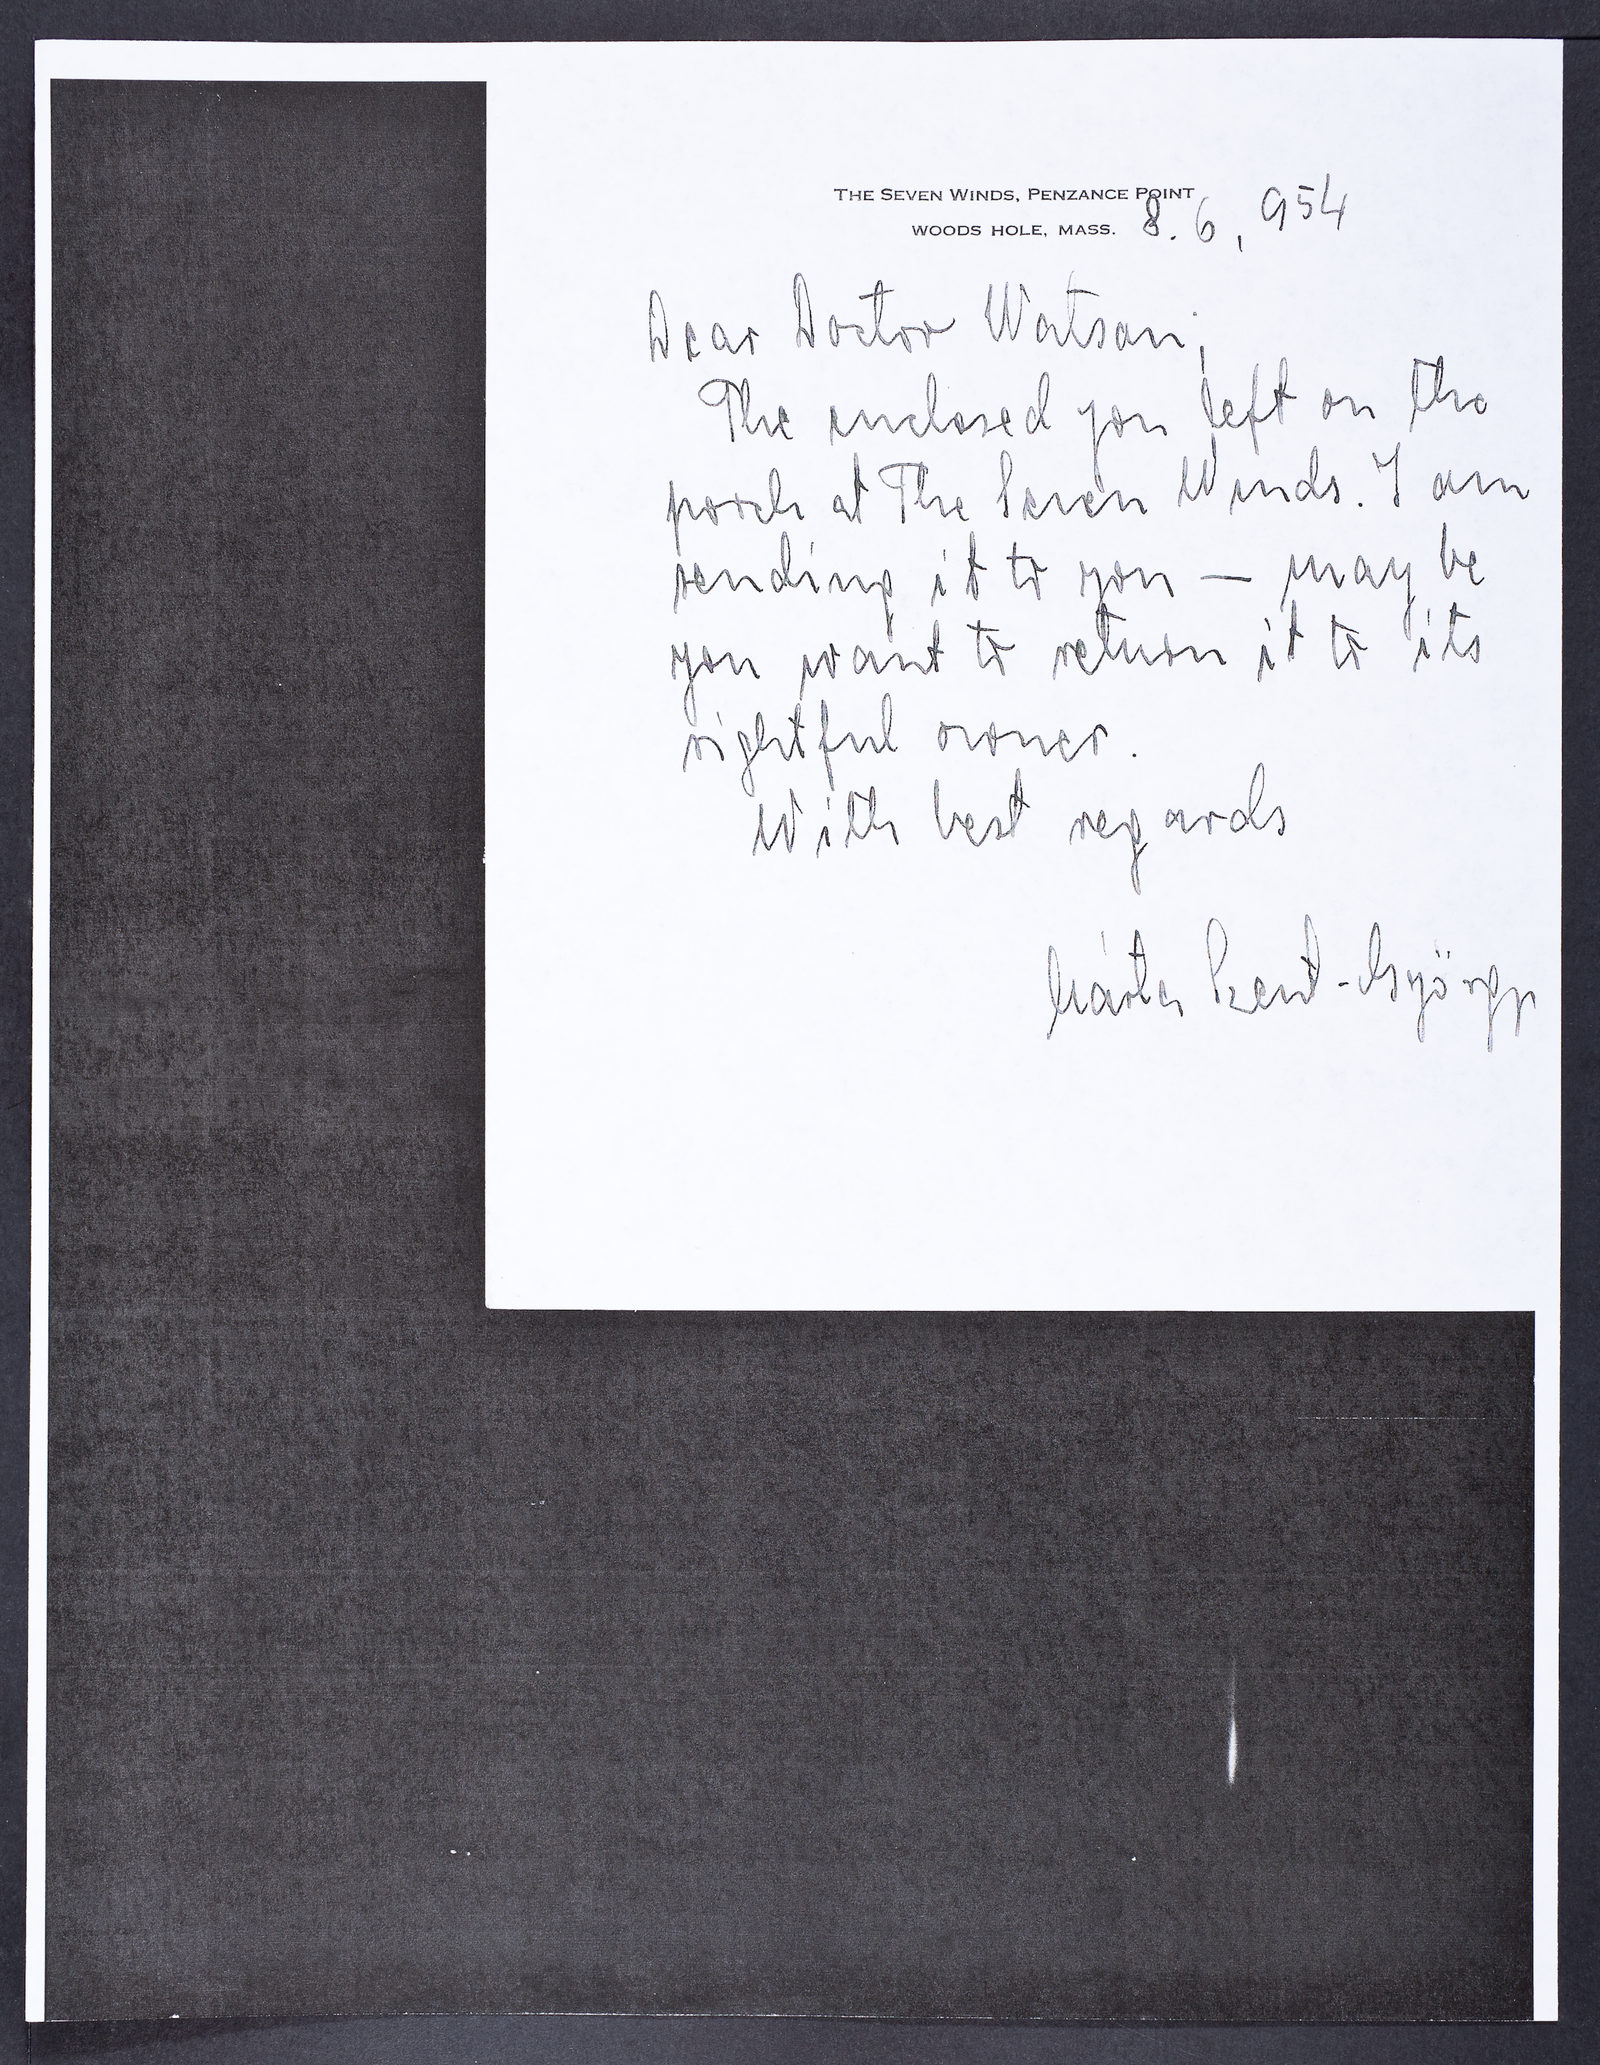 THE SEVEN WINDS, PENZANCE POINT
WOODS HOLE, MASS. 8. 6, 954
Dear Doctor Watson;
The enclosed you left on the
porch at The Seven Winds. I am
sending it to you — may be
you want to return it to its
rightful owner.
With best regards
Márta Szent-Györgyi